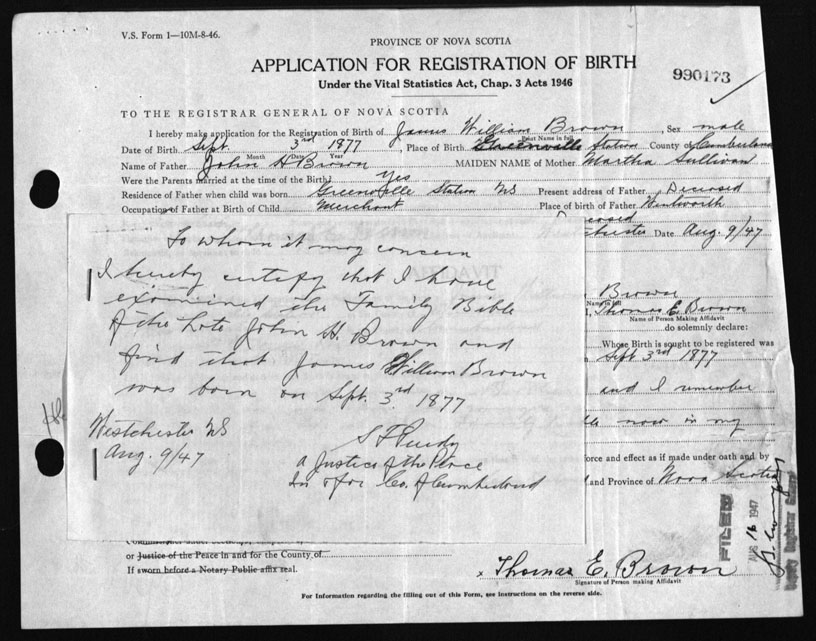 V.S. Form 1—10M-8-46.
PROVINCE OF NOVA SCOTIA
APPLICATION FOR REGISTRATION OF BIRTH
Under the Vital Statistics Act, Chap. 3 Acts 1946
990173
TO THE REGISTRAR GENERAL OF NOVA SCOTIA
I hereby make application for the Registration of Birth of James William Brown, Sex male
Print Name in full
Date of Birth Sept. 3rd 1877, Place of Birth Greenville Station County of Cumberland
Month Date Year
Name of Father John H Brown MAIDEN NAME of Mother Martha Sullivan
Were the Parents married at the time of the Birth? Yes
Residence of Father when child was born Greenville Station NS Present address of Father Deceased
Occupation of Father at Birth of Child Merchant Place of birth of Father Wentworth
Deceased
Westchester Date Aug. 9/47
To whom it may concern
I hereby certify that I have
examined the Family Bible
of the late John H. Brown and
find that James William Brown
was born on Sept. 3rd 1877
Westchester NS
Aug. 9/47
S F Purdy
a Justice of the Peace
in & for Co. of Cumberland
Brown
Name in full
I, Thomas E. Brown
Name of Person Making Affidavit
do solemnly declare:
Whose Birth is sought to be registered was
Sept 3rd 1877
and I remember
now in my
force and effect as if made under oath and by
and Province of Nova Scotia
FILED
AUG 16 1947
Deputy Registrar General
or Justice of the Peace in and for the County of
If sworn before a Notary Public affix seal.
x Thomas E. Brown
Signature of Person making Affidavit
For Information regarding the filling out of this Form, see instructions on the reverse side.